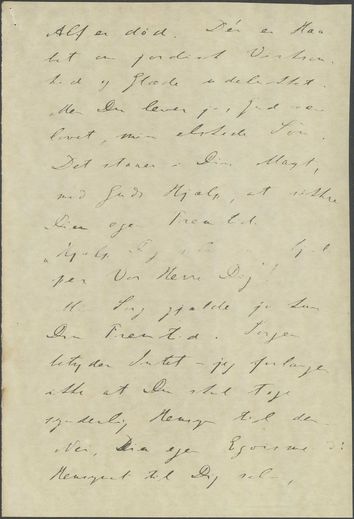 Alt er død. Dér er Haa
bet om jordisk Virksom
hed og Glæde udelukket.
Men Du lever jo, Gud være
lovet, min elskede Søn.
Det staaer i Din Magt,
med Guds Hjælp, at sikkre
Din egen Fremtid.
"Hjælp Dig selv, saa hjæl
per Vor Herre Dig
Min Sorg gjælder jo kun
Din Fremtid. Sorgen
betyder Intet – jeg forlanger
ikke at Du skal tage
synderlig Hensyn til den
Nei, Din egen Egoisme ɔ:
Hensynet til Dig selv,